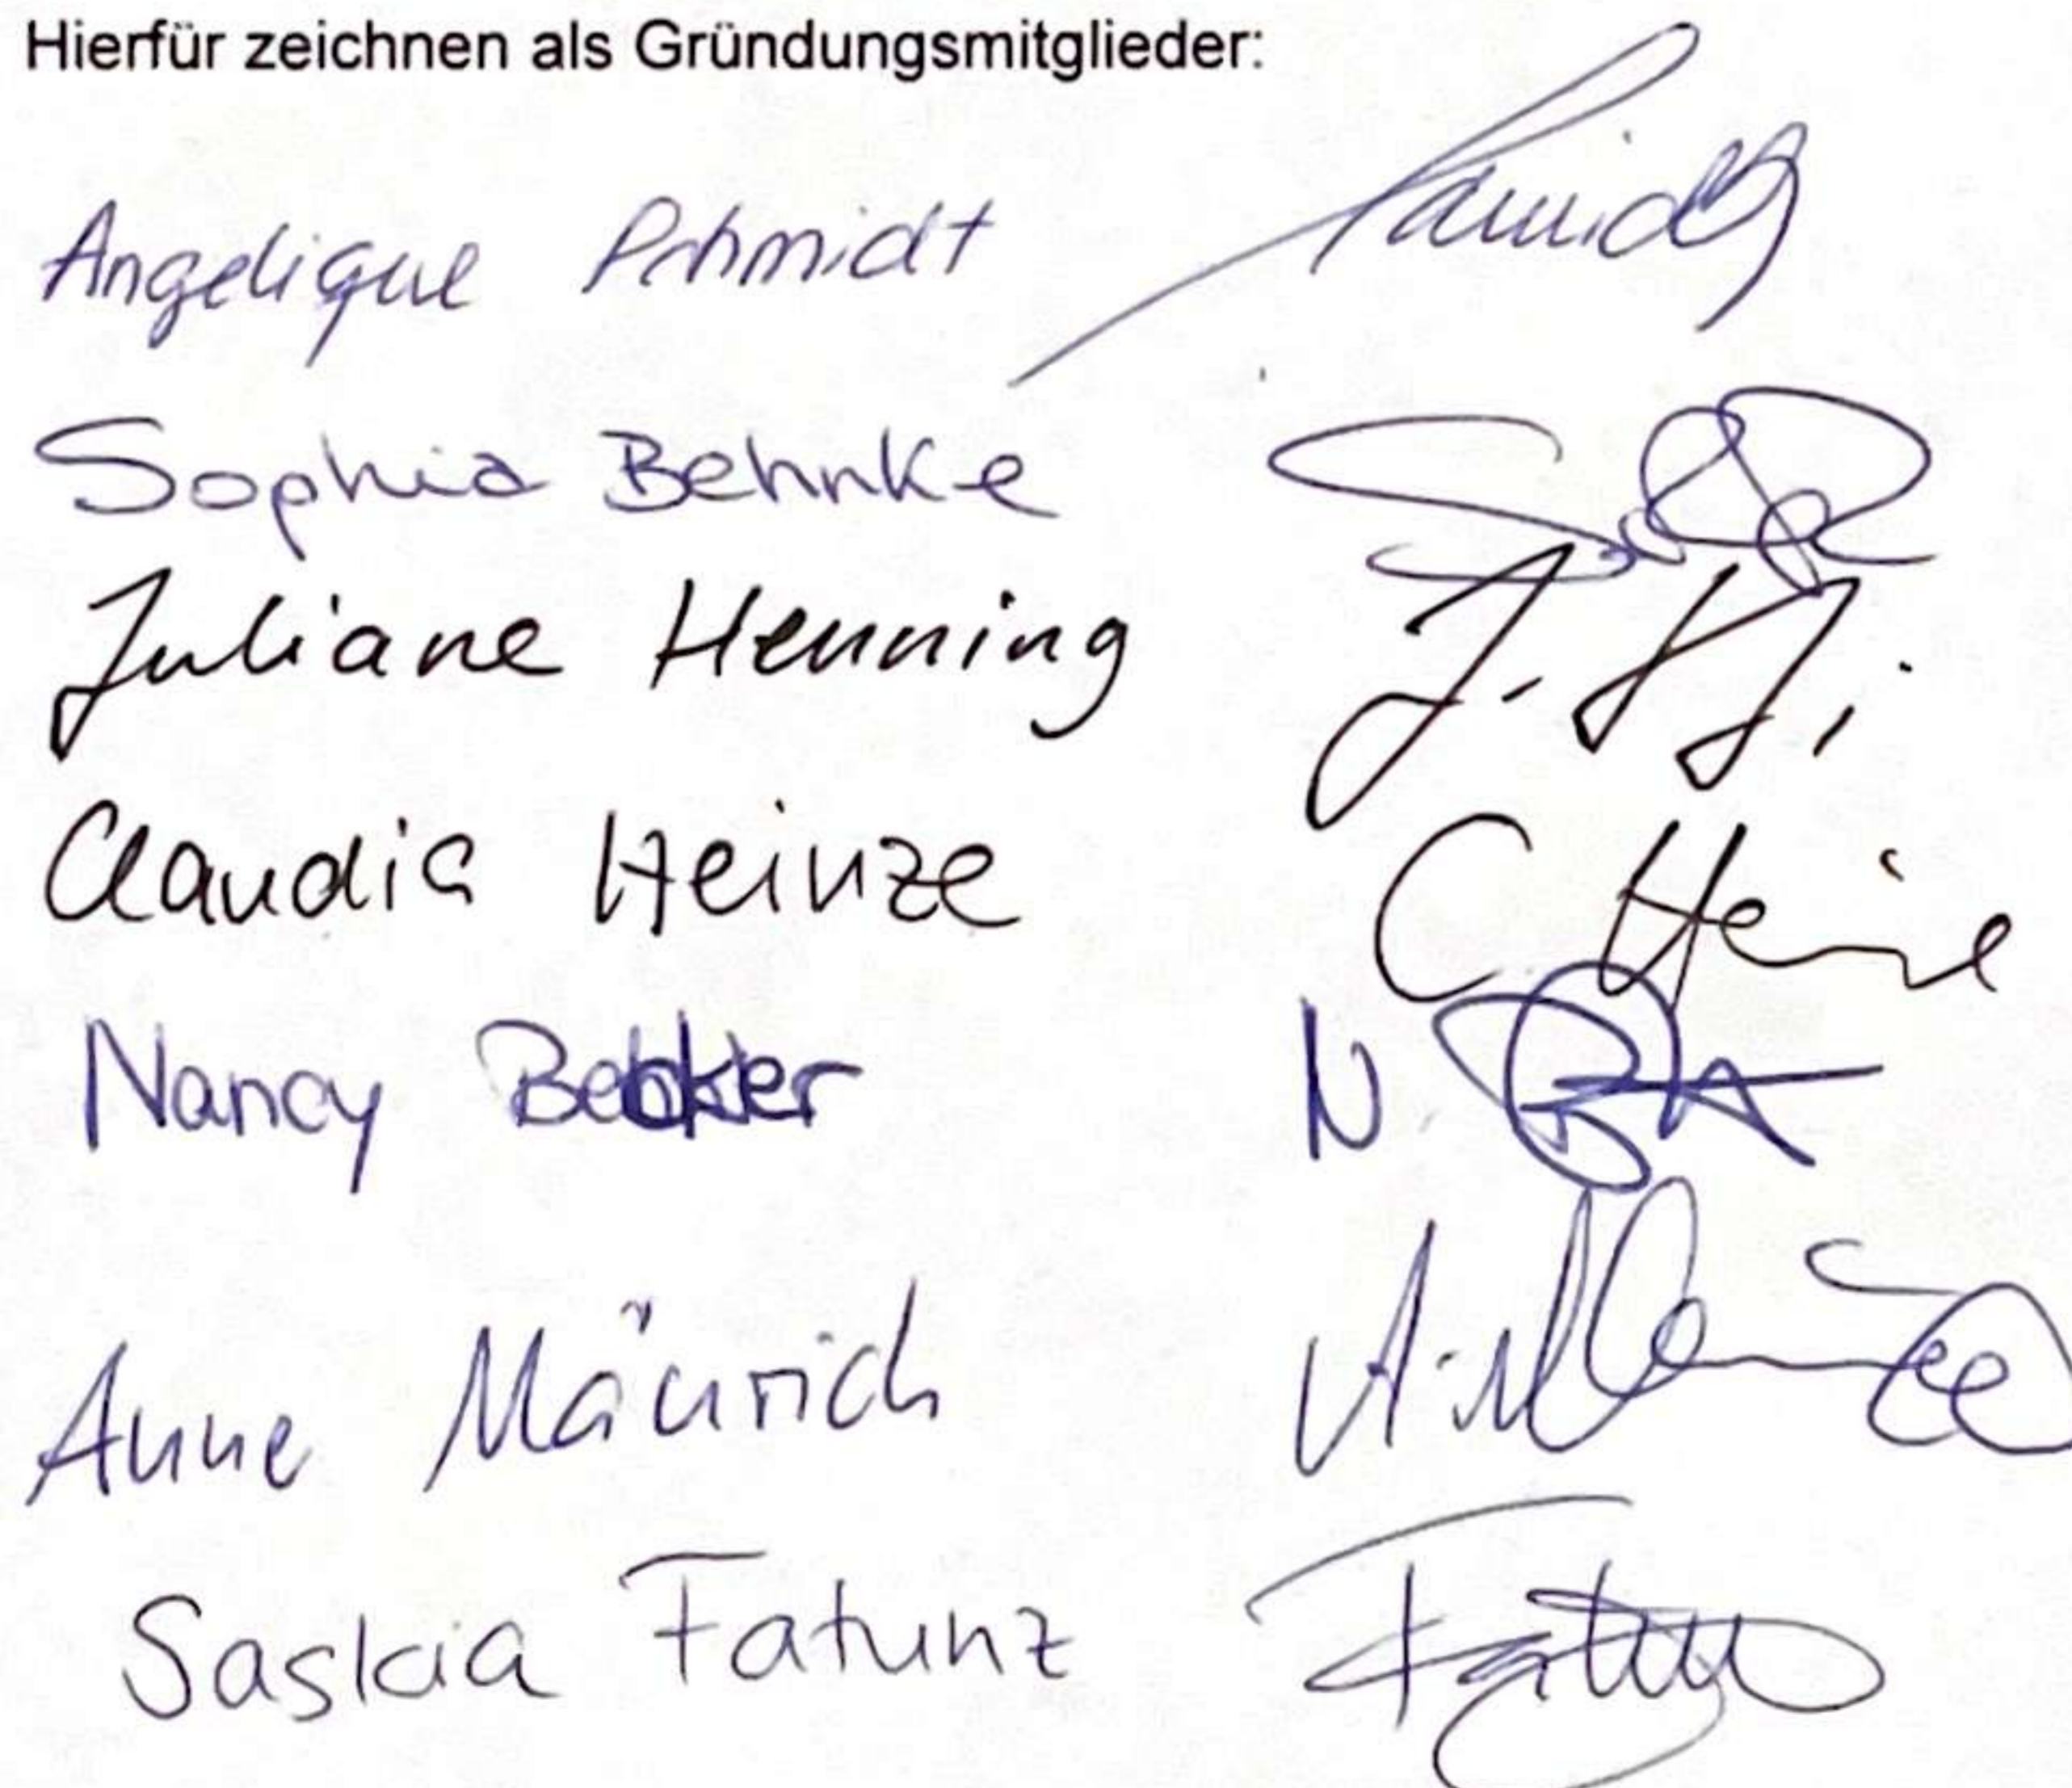 Hierfür zeichnen als Gründungsmitglieder:
Angelique Schmidt
Sophia Behnke
Juliane Henning J. H
Claudia Heinze C Heine
Nancy N.
Anne Mäurich A.
Saskia Fatunz